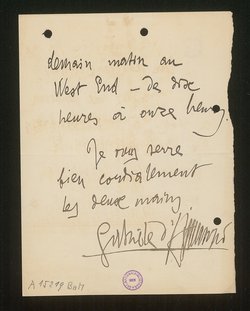 demain matin au
West End – de dix
heures à onze heures.
Je vous serre
bien cordialement
les deux mains.
Gabriele d'Annunzio
A 15219 Bah